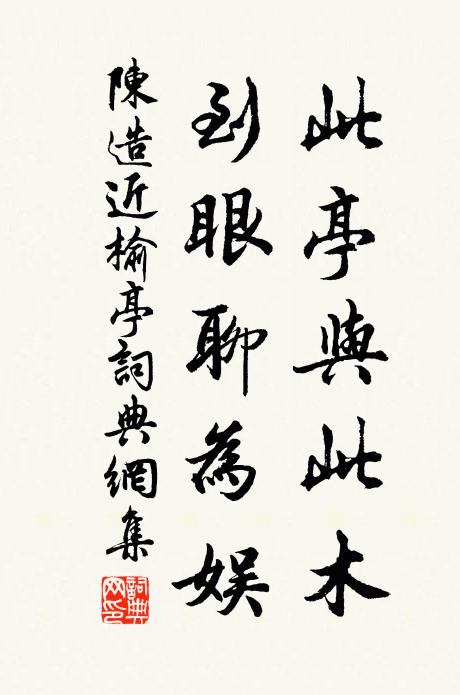 此亭與此木
到眼聊為娛
陳造近榆亭詞典網集
詞典网印